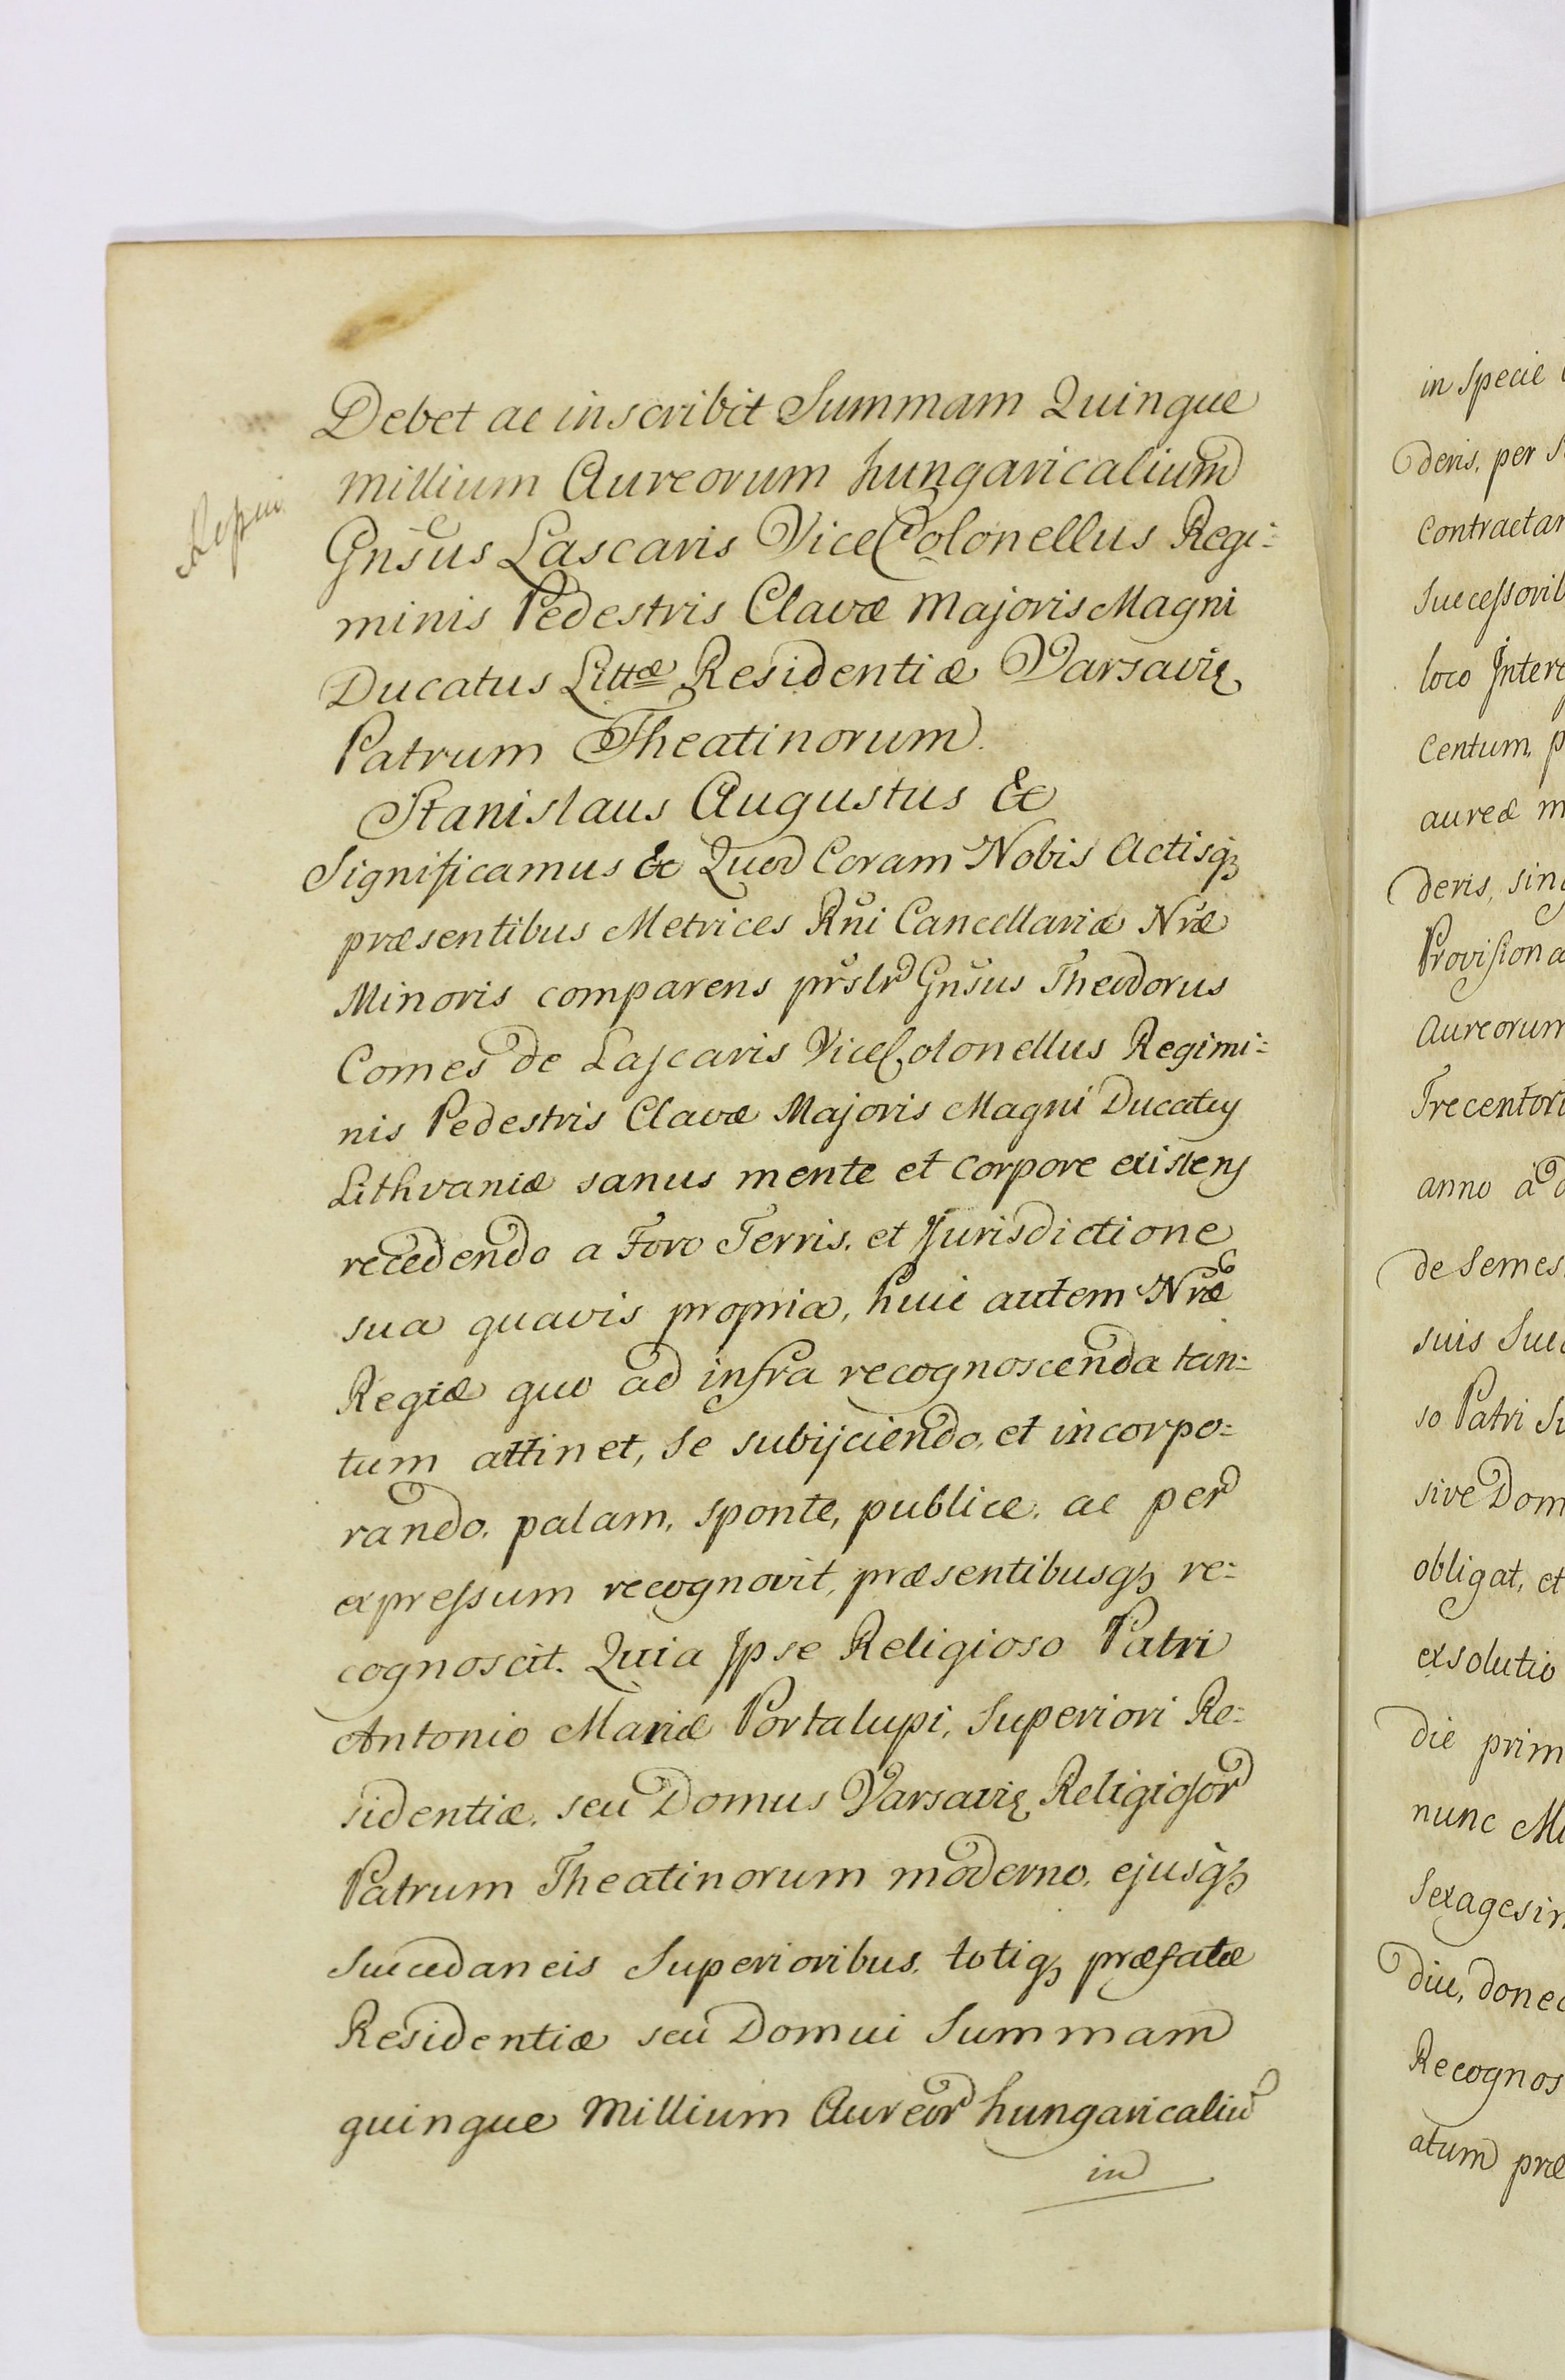 Debet ac inscribit Summam Quinque
millium Aureorum hungaricalium
Gnsus Lascaris ViceColonellus Regi=
minis Pedestris Clavæ Majoris Magni
Ducatus Littæ Residentiæ Varsavię
Patrum Theatinorum.
Stanislaus Augustus &c
Significamus &c Quod Coram Nobis Actisqȝ
præsentibus Metrices Rni Cancellariæ Nræ
Minoris comparens prslr Gnsus Theodorus
Comes de Lascaris ViceColonellus Regimi=
nis Pedestris Clavæ Majoris Magni Ducatus
Lithvaniæ sanus mente et corpore existens
recedendo a Foro Terris, et Jurisdictione
sua quavis propria, huic autem Nræ
Regiæ quo ad infra recognoscenda tan=
tum attinet, se subijciendo, et incorpo=
rando, palam, sponte, publice, ac per
expressum recognovit, præsentibusqȝ re=
cognoscit. Quia Ipse Religioso Patri
Antonio Mariæ Portalupi, Superiori Re=
sidentiæ, seu Domus Varsavię Religiosor
Patrum Theatinorum moderno, ejusqȝ
Succedaneis Superioribus, totiqȝ præfatæ
Residentiæ seu Domui Summam
quinque Millium Aureor hungaricaliu
in
in specie
deris, per
Contractar
Successorib
loco Inter
Centum, p
aureæ m
deris, sing
Provisiona
Aureorum
Trecentor
anno à d
de Semes
suis Succ
so Patri Su
sive Dom
obligat, et
exsolutio
die prim
nunc Mi
Sexagesim
diu, donec
Recognos
atum præ